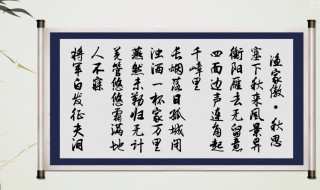 渔家傲·秋思
塞下秋来风景异
衡阳雁去无留意
四面边声连角起
千嶂里
长烟落日孤城闭
浊酒一杯家万里
燕然未勒归无计
羌管悠悠霜满地
人不寐
将军白发征夫泪